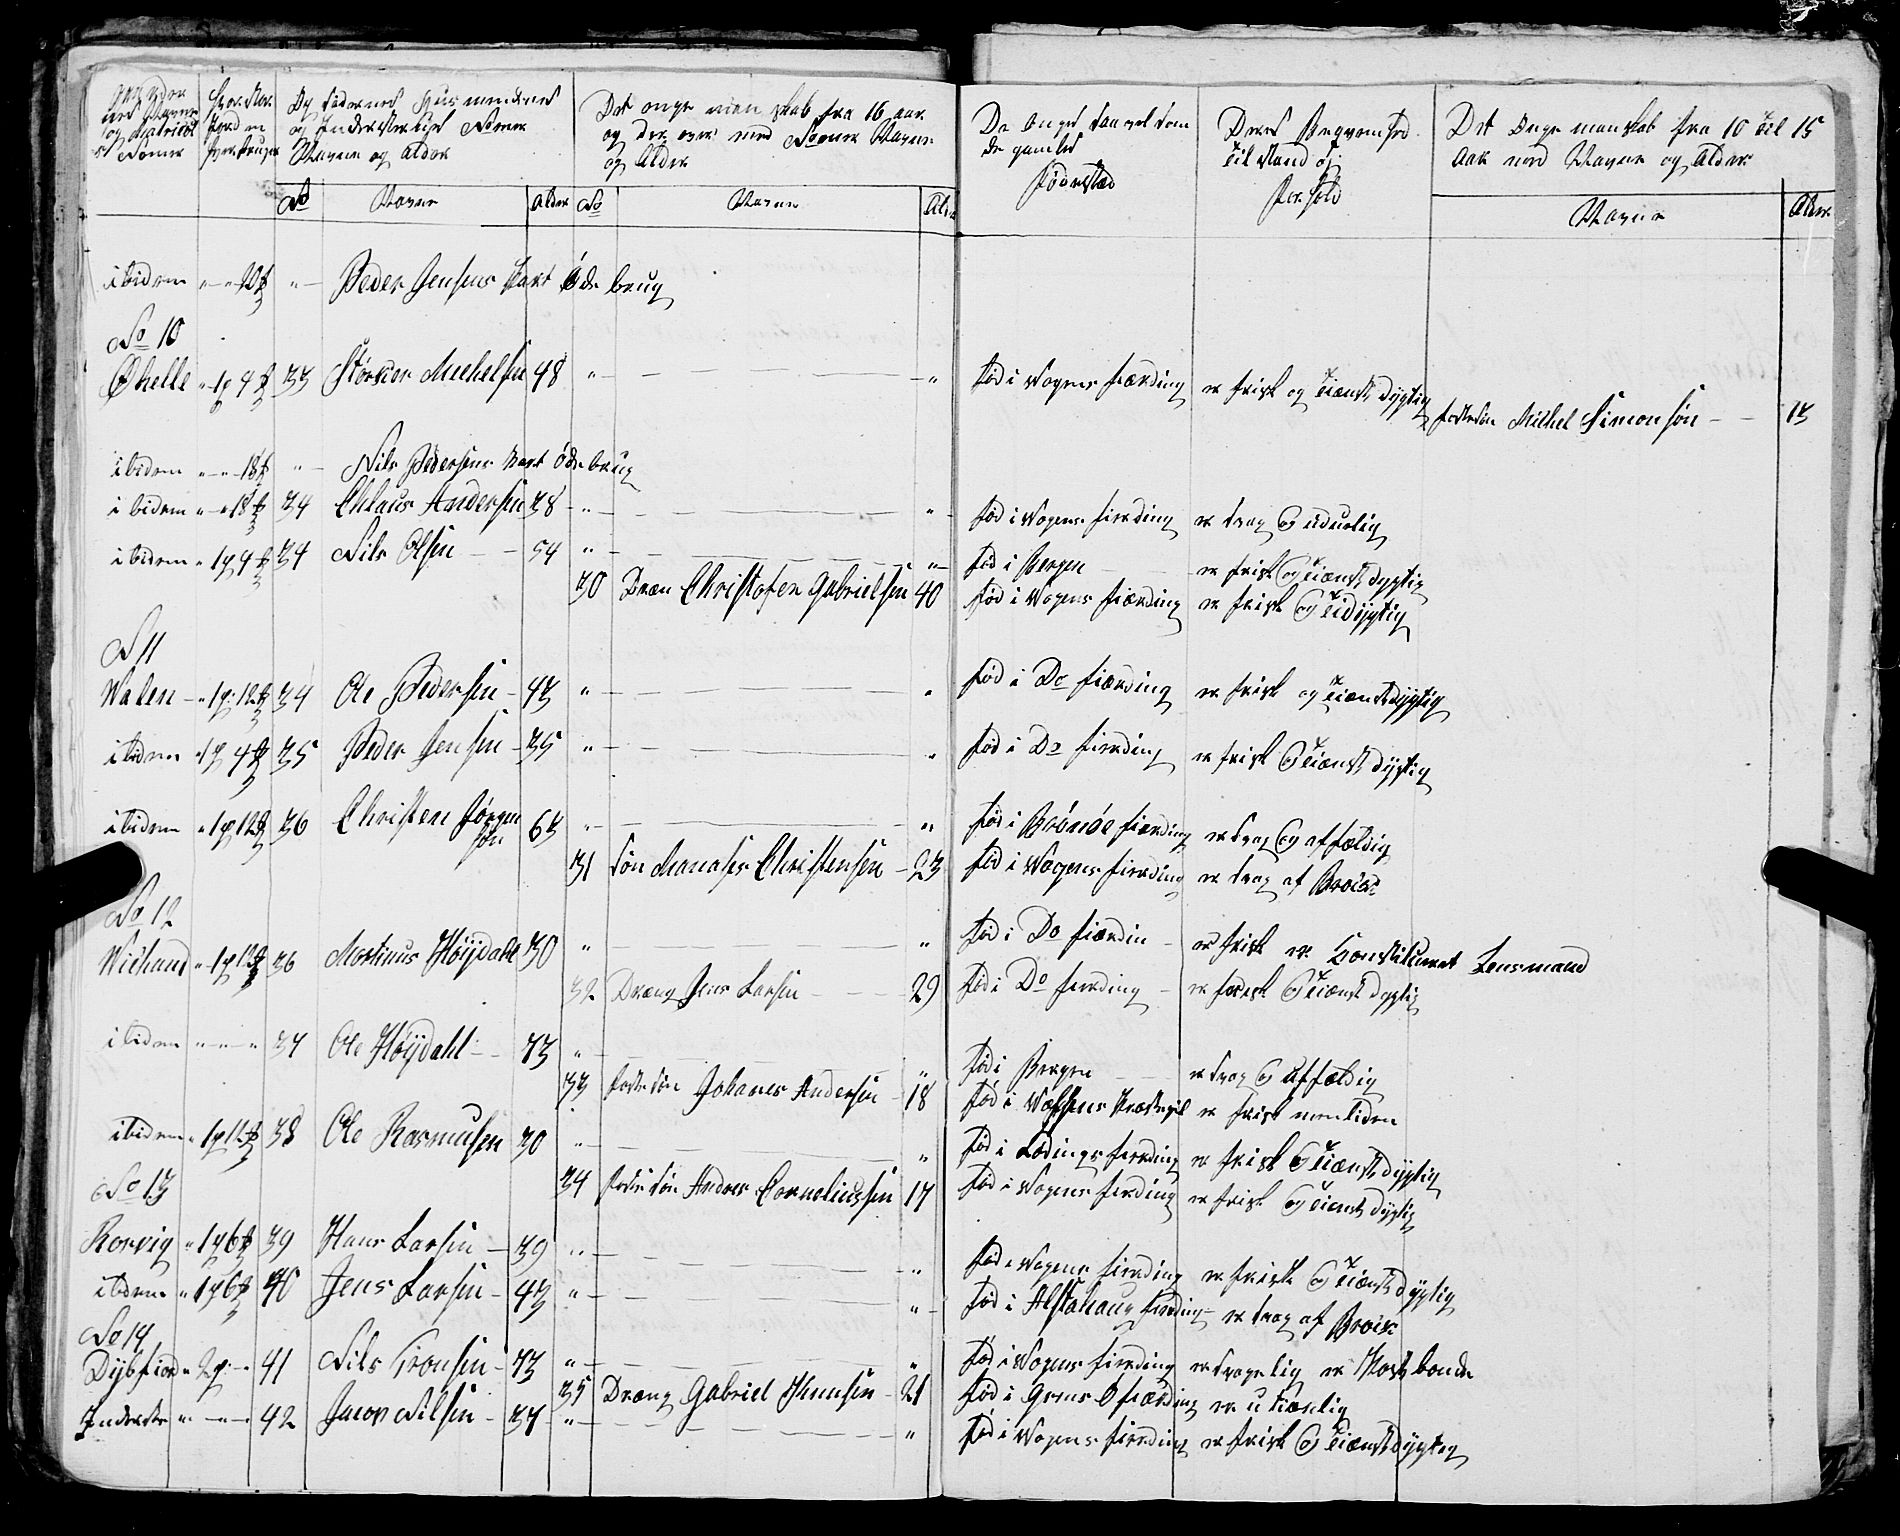 og Matricul No Navne
Hvor Stor Jord en hver bruger
De Sidernes Husmændnes og Inderster ligt Nomer Navne og alder
Det unge manskab fra 16 aar og der over med Nomer Navne og Alder
De unges saavel som de gamles fødested
Deres til stand og forhold
Det unge manskab fra 10 til 15 aar med Navne og Alder
No Navne Alder No Navne Alder Navne Alder
ibidem " " 20 " Peder Jensens Part öde brug
No 10
Øhelle " 1 p 9 33 Størker Michelsen 48 " " fød i Wogens fierding er frisk og tienst dygtig fostersøn Michel Simonsøn 13
ibidem " " 18 " Nils Pedersens Part öde brug
ibidem " " 18 34 Chlaus Andersen 38 " " fød i Wogens fierding er svag og uduelig
ibidem " 1 p 9 34 Nils Olsen 54 " " fød i Bergen er frisk og tienst dygtig
30 Dræn Christofer Gabrielsen 40 fød i Wogens fierding er frisk og tidygtig
N 11
Walen " 1 p 12 34 Ole Pedersen 43 " " fød i Do fierding er frisk og tienstdygtig
ibidem " 1 p 4 35 Peder Jensen 35 " " fød i Do fierding er frisk og tienst dygtig
ibidem " 1 p 12 36 Christen Jørgensøn 63 " " fød i Brönöe fierding er svag og affældig
31 søn Manases Christensen 23 fød i Wogens fierding er svag af Brok
No 12
Wichand " 1 p 12 36 Mortinus Höijdahl 30 " " fød i Do fierdin er frisk er Constitueret Lensmand
32 Dræng Jens Larsen 29 fød i Do fierding er frisk og tienst dygtig
ibidem " " " 37 Ole Höijdahl 73 " " fød i Bergen er svag og affældig
33 fostersøn Johannes Andersen 18 fød i Wefsens Præstegiel er frisk men liden
ibidem " 1 p 12 38 Ole Rasmussen 30 " " fød i Lødings fierding er frisk og tienst dygtig
34 foster søn Andreas Corneliussen 17 fød i Wogens fierding er frisk og tienst dygtig
No 13
Rorvig " 1 p 6 39 Hans Larsen 39 " " fød i Wogens fierding er frisk og tienst dygtig
ibidem " 1 p 6 40 Jens Larsen 43 " " fød i Alstahaug fierding er svag af Brok
No 14
Dybfiord " 2 p " 41 Nils Tronsen 73 " " fød i Wogens fierding er svagelig er Postbonde
35 Dræng Gabriel Hansen 21 fød i fierding er utienlig
Inderste " " " 42 Jacob Nilsen 37 " " fød i Wogens fierding er frisk og tienstdygtig